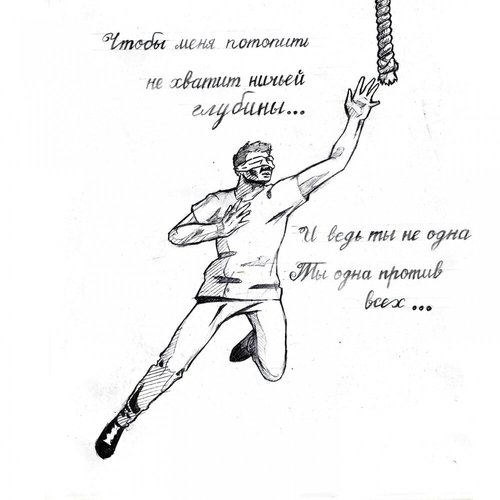 Чтобы меня потопить
не хватит ничьей
глубины...
И ведь ты не одна
Ты одна против
всех...